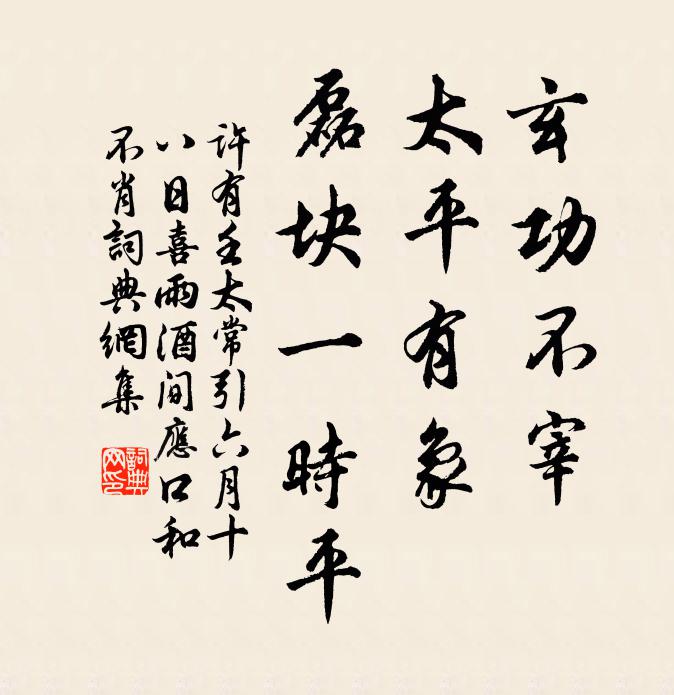 玄功不宰
太平有象
磊块一時平
許有壬太常引六月十
八日喜雨酒间應口和
不肖詞典網集
詞典网印